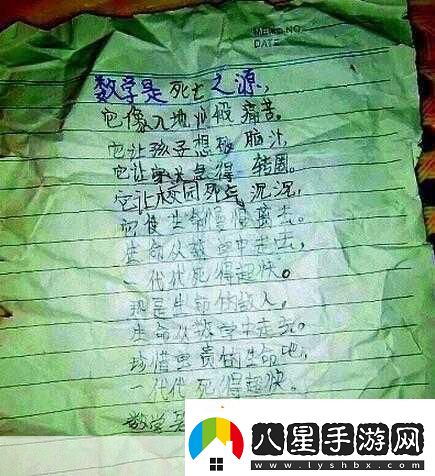 MEMO NO.
DATE
数学是死亡之源，
它像入地狱般痛苦。
它让孩子想破脑汁，
它让家长急得转圈。
它让校园死气沉沉，
它使生命慢慢离去。
生命从数学中走去，
一代代死得超快。
那是生命的敌人，
生命从数学中走去。
珍惜宝贵的生命吧，
一代代死得超快。
数学是
八星手游网
www.lyshbx.com